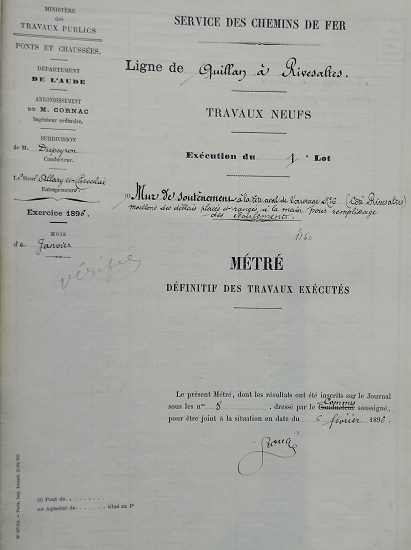 MINISTÈRE
des
TRAVAUX PUBLICS
PONTS ET CHAUSSÉES.
DÉPARTEMENT
DE L'AUDE
ARRONDISSEMENT
DE M. CORNAC
Ingénieur ordinaire.
SUBDIVISION
de M. Dupeyron
Conducteur.
Le Sieur Allary et
Entrepreneur.
Exercice 1895.
MOIS
de Janvier
vérifié
SERVICE DES CHEMINS DE FER
Ligne de Quillan à Rivesaltes.
TRAVAUX NEUFS
Exécution du 1er Lot
(1) Mur de soutènement à la tête aval de l'ouvrage (Côté Rivesaltes)
moellons des déblais placés et rangés à la main pour remplissage
des éboulements.
MÉTRÉ
DÉFINITIF DES TRAVAUX EXÉCUTÉS
Le présent Métré, dont les résultats ont été inscrits sur le Journal
sous les nos 8, dressé par le Commis
Conducteur soussigné,
pour être joint à la situation en date du 6 février 1896.
(1) Pont de
ou Aqueduc de situé au Pt